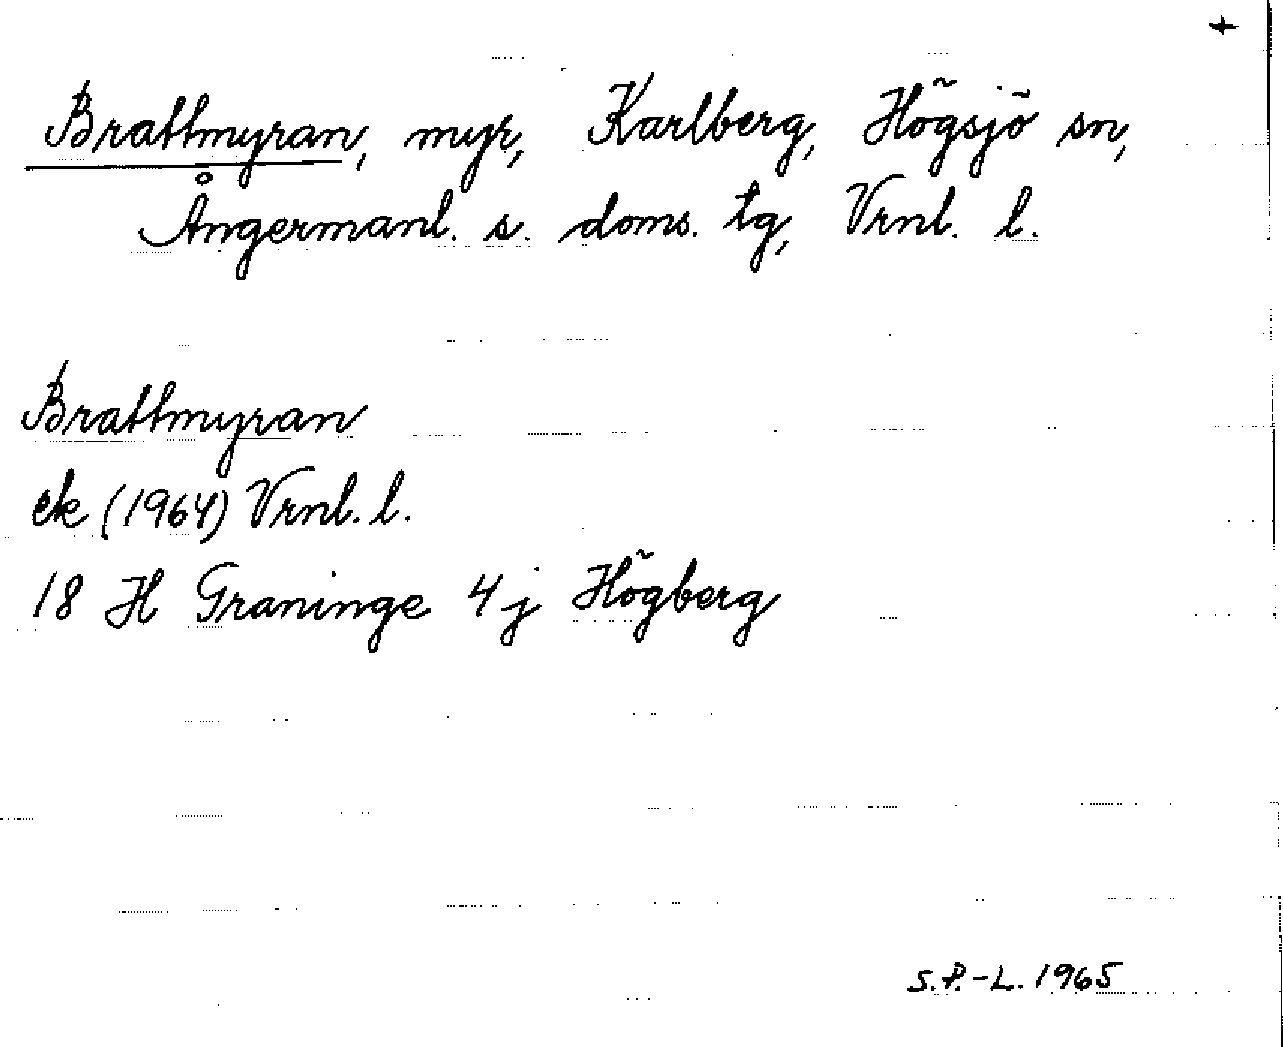 +
Brattmyran, myr, Karlberg, Högsjö sn,
Ångermanl. s. doms. tg, Vrnl. l.
Brattmyran
ek (1964) Vrnl. l.
18 H Graninge 4 j Högberg
S.P.-L. 1965